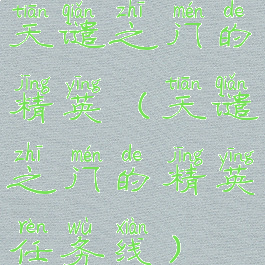 tiān qiǎn zhī mén de
天谴之门的
jīng yīng tiān qiǎn
精英（天谴
zhī mén de jīng yīng
之门的精英
rèn wù xiàn
任务线）